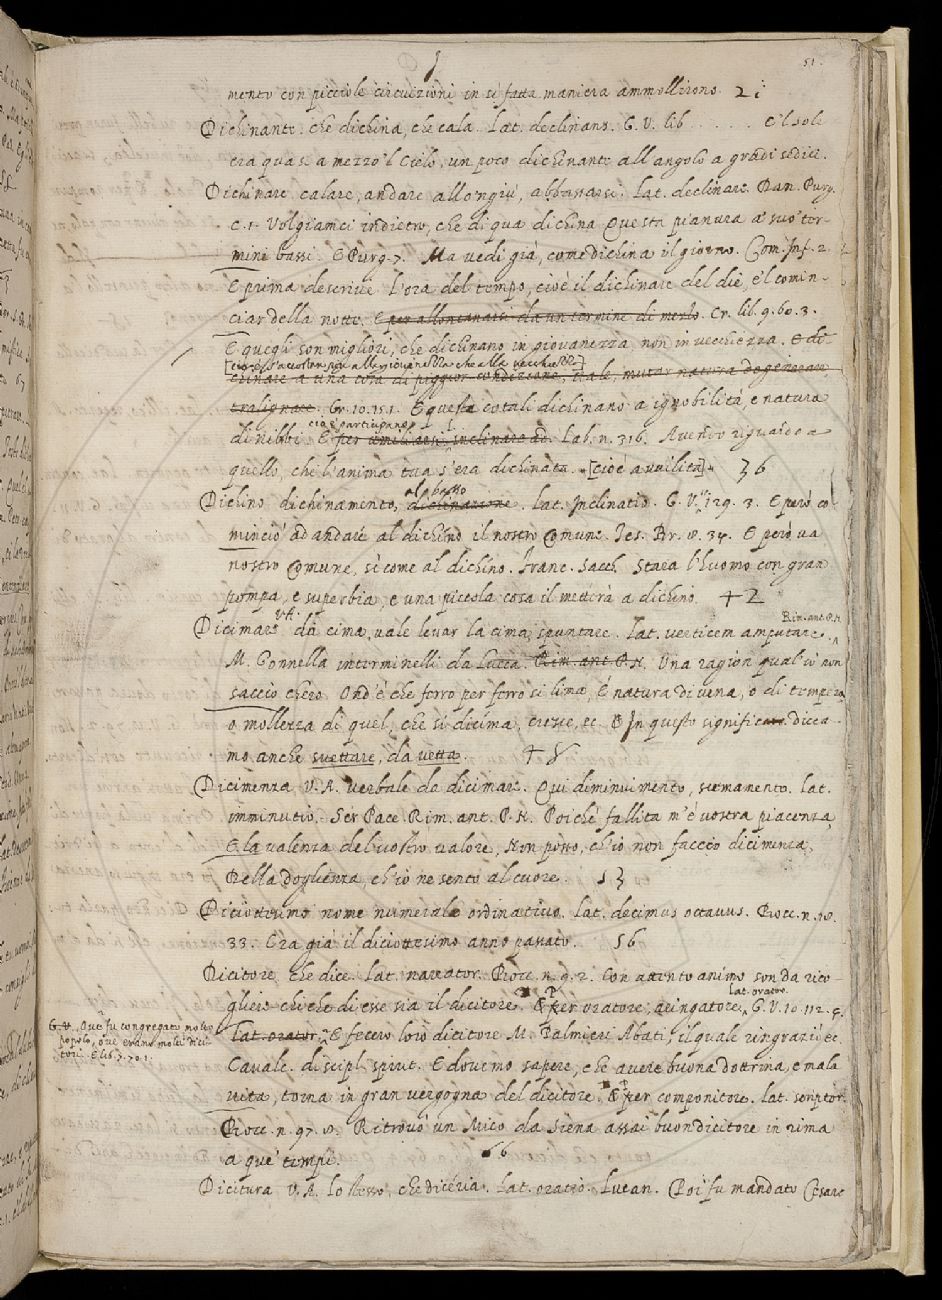 51.
mento con picciole circuizioni in sì fatta maniera ammollirono. 21
Dichinante. che dichina, che cala. Lat. declinans. G. V. lib ..... E 'l sole
era quasi a mezzo 'l Cielo, un poco dichinante all'angolo a gradi sedici.
Dichinare. calare, andare allo 'ngiù, abbassarsi. Lat. declinare. Dan. Purg.
c. 1. Volgiamci indietro, che di qua dichina Questa pianura a' suo' ter-
mini bassi. E Purg. 7. Ma vedi già, come dichina il giorno. Com. Inf. 2
E prima descrive l'ora del tempo, cioè il dichinare del die, e 'l comin-
ciar della notte. E per allontanarsi da un termine di merlo. Cr. lib. 9. 60. 3.
E quegli son migliori, che dichinano in giovanezza, non in vecchiezza. E di-
[cioè s'accostan più alla giovanezza che alla vecchiezza]
chinare a una cosa di peggior condizione, tale, mutar natura degenerau
tralignare. Cr. 10. 15. 1. E questa cotali dichinano a ignobilità, e natura
cioè participano
di nibbi. E per umiliarsi, inclinare ad. Lab. n. 316. Avendo riguardo a
quello, che l'anima tua s'era dichinata. [cioè avvilita] 36
al basso
Dichino dichinamento, dichinazione. Lat. Inclinatio. G. V. 129. 3. E però co-
minciò ad andare al dichino il nostro Comune. Tes. Br. 8. 34. E però va
nostro Comune, sì come al dichino. Franc. Sacch. Starà l'huomo con gran
pompa, e superbia, e una piccola cosa il metterà a dichino. +2
Dicimare da cima, vale levar la cima, spuntare. Lat. verticem amputare. Rim. ant. P. N.
M. Gonnella interminelli da Lucca. Rim. ant. P. N. Una ragion qual'io non
saccio chero Ond'è che ferro per ferro si lima, È natura di vena, o di tempera,
o mollezza di quel, che si dicima, cresce, ec. E In questo significato dicia-
mo anche svettare, da vetta. +8
Dicimenza V. A. verbale da dicimare. Qui diminuimento, scemamento. Lat.
imminutio. Ser Pace. Rim. ant. P. N. Poichè fallita m'è vostra piacenza,
E la valenza del vostro valore, Non posso, ch'io non faccio dicimenza,
Della doglienza, ch'io ne sento al cuore. 13
Diciottesimo nome numerale ordinativo. Lat. decimus octavus. Bocc. n. 18.
33. Era già il diciottesimo anno passato. 56
Dicitore. che dice. Lat. narrator. Bocc. n. 9. 2. Con attento animo son da rico-
glier chi che di esse sia il dicitore. E per oratore, aringatore. Lat. orator. G. V. 10. 112. 5.
G. V. Ove fu congregato molto
popolo, ove erano molti dici-
tori. E lib. 7. 70. 1.
Lat. orator. E feciero loro dicitore M. Palmieri Abati, il quale ringraziò ec.
Cavalc. discipl. spirit. E dovemo sapere, che avere buona dottrina, e mala
vita, torna in gran vergogna del dicitore. E per componitore. Lat. scriptor.
Bocc. n. 97. 8. Ritrovò un Mico da Siena assai buon dicitore in rima
a que' tempi. 66
Dicitura V. A. lo stesso, che diceria. Lat. oratio. Lucan. Poi fu mandato Cesare